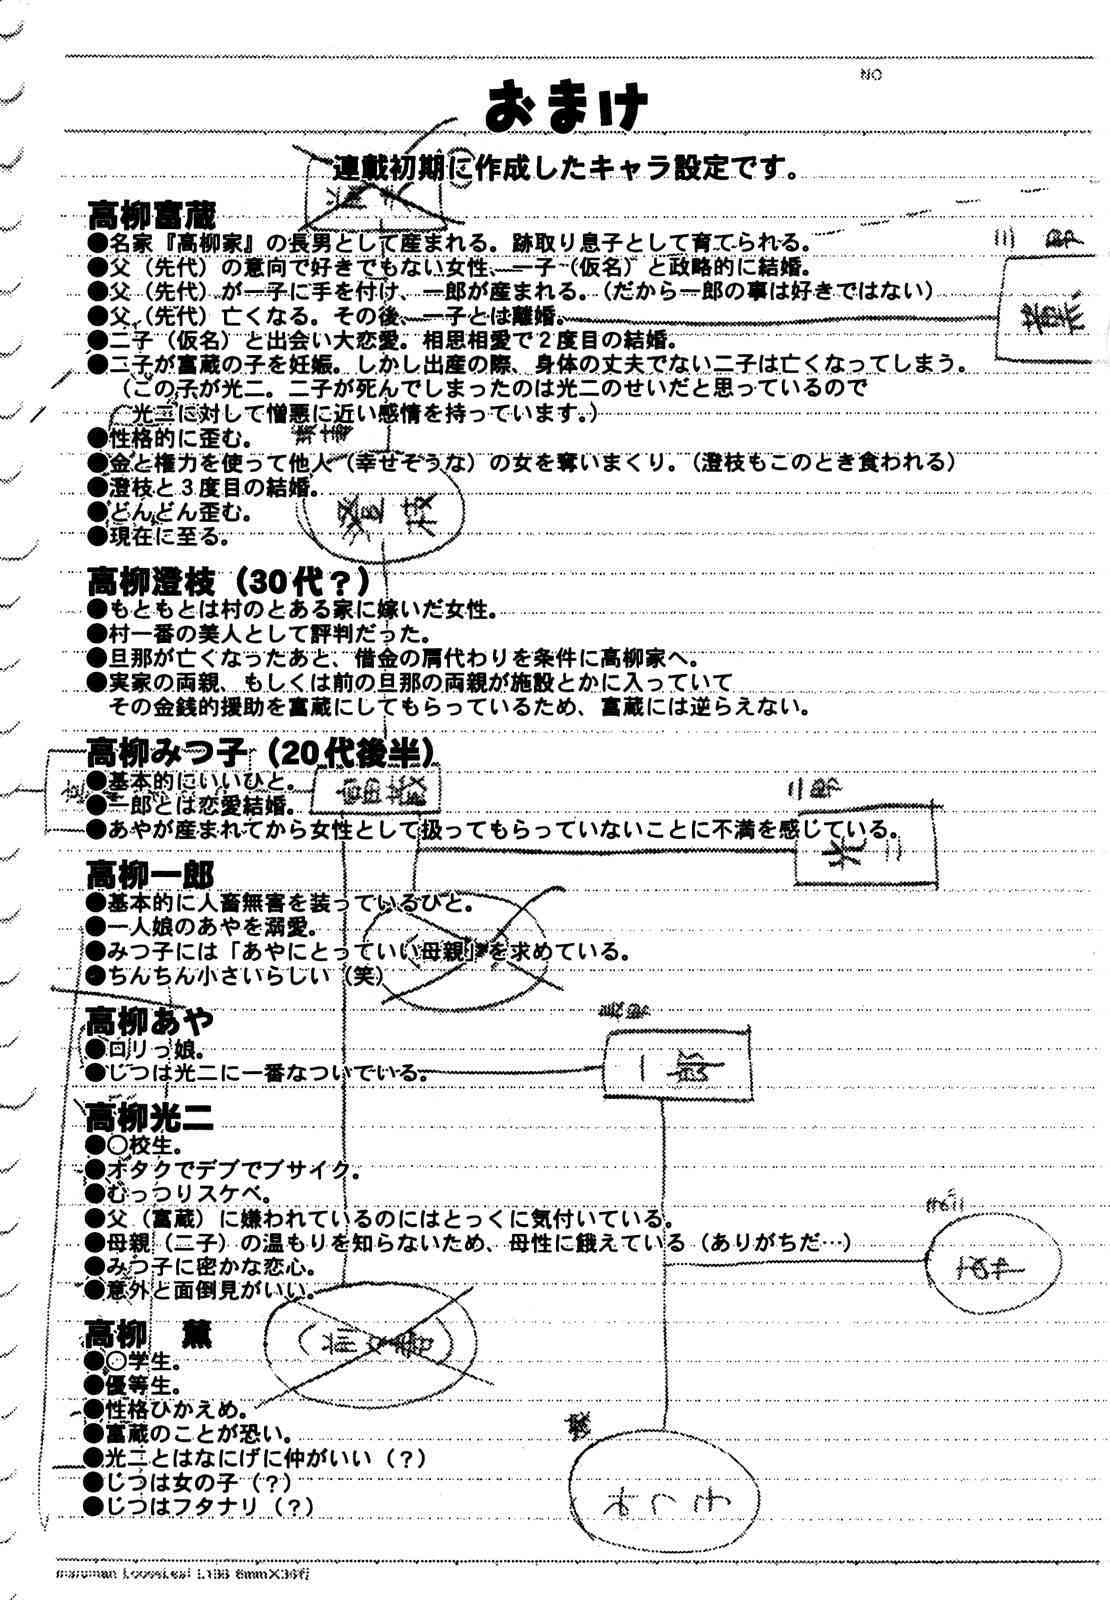 NO
おまけ
連載初期に作成したキャラ設定です。
高柳富蔵
●名家『高柳家』の長男として産まれる。跡取り息子として育てられる。
●父（先代）の意向で好きでもない女性、一子（仮名）と政略的に結婚。
●父（先代）が一子に手を付け、一郎が産まれる。（だから一郎の事は好きではない）
●父（先代）亡くなる。その後、一子とは離婚。
●二子（仮名）と出会い大恋愛。相思相愛で２度目の結婚。
●二子が富蔵の子を妊娠。しかし出産の際、身体の丈夫でない二子は亡くなってしまう。
（この子が光二。二子が死んでしまったのは光二のせいだと思っているので
光二に対して憎悪に近い感情を持っています。）
●性格的に歪む。
●金と権力を使って他人（幸せそうな）の女を奪いまくり。（澄枝もこのとき食われる）
●澄枝と３度目の結婚。
●どんどん歪む。
●現在に至る。
澄枝
高柳澄枝（30代？）
●もともとは村のとある家に嫁いだ女性。
●村一番の美人として評判だった。
●旦那が亡くなったあと、借金の肩代わりを条件に高柳家へ。
●実家の両親、もしくは前の旦那の両親が施設とかに入っていて
その金銭的援助を富蔵にしてもらっているため、富蔵には逆らえない。
高柳みつ子（20代後半）
●基本的にいいひと。
富蔵
●一郎とは恋愛結婚。
二郎
●あやが産まれてから女性として扱ってもらっていないことに不満を感じている。
光二
高柳一郎
●基本的に人畜無害を装っているひと。
●一人娘のあやを溺愛。
●みつ子には「あやにとっていい母親」を求めている。
●ちんちん小さいらしい（笑）
高柳あや
●ロリっ娘。
●じつは光二に一番なついている。
一郎
高柳光二
●○校生。
●オタクでデブでブサイク。
●むっつりスケベ。
●父（富蔵）に嫌われているのにはとっくに気付いている。
●母親（二子）の温もりを知らないため、母性に餓えている（ありがちだ…）
●みつ子に密かな恋心。
●意外と面倒見がいい。
高柳　薫
●○学生。
●優等生。
●性格ひかえめ。
●富蔵のことが恐い。
●光二とはなにげに仲がいい（？）
●じつは女の子（？）
●じつはフタナリ（？）
maruman LooseLeaf L139 6mm×36行